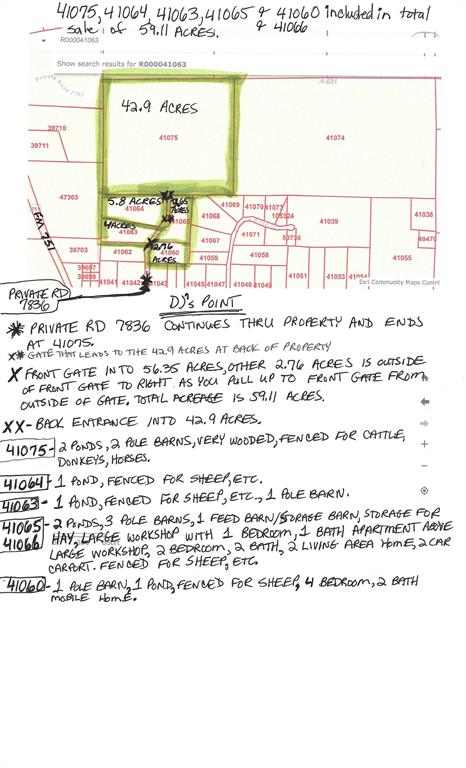 41075, 41064, 41063, 41065 & 41060 included in total
sale of 59.11 ACRES. & 41066
R000041063
Show search results for R000041063
Private Road 7762
A-021
42.9 ACRES
41075
41074
39710
39711
47303
5.8 ACRES
41064
41065
ACRES
41069
41070
41073
105324
41068
41071
41039
41038
4 ACRES
41063
41067
50730
49470
FM 751
39703
41062
2.76
ACRES
41060
41059
41058
39697
39698
41041
41042
41043
41047
41048
41049
41051
41053
41054
Esri Community Maps Contri
PRIVATE RD
7836
DJ's POINT
* PRIVATE RD 7836 CONTINUES THRU PROPERTY AND ENDS
AT 41075.
X* GATE THAT LEADS TO THE 42.9 ACRES AT BACK OF PROPERTY
X FRONT GATE INTO 56.35 ACRES, OTHER 2.76 ACRES IS OUTSIDE
OF FRONT GATE TO RIGHT AS YOU PULL UP TO FRONT GATE FROM
OUTSIDE OF GATE, TOTAL ACREAGE IS 59.11 ACRES.
XX- BACK ENTRANCE INTO 42.9 ACRES.
41075 - 2 PONDS, 2 POLE BARNS, VERY WOODED, FENCED FOR CATTLE,
DONKEYS, HORSES.
41064 - 1 POND, FENCED FOR SHEEP, ETC.
41063 - 1 POND, FENCED FOR SHEEP, ETC., 1 POLE BARN.
41065 - 2 PONDS, 3 POLE BARNS, 1 FEED BARN/STORAGE BARN, STORAGE FOR
41066 HAY, LARGE WORKSHOP WITH 1 BEDROOM, 1 BATH APARTMENT ABOVE
LARGE WORKSHOP, 2 BEDROOM, 2 BATH, 2 LIVING AREA HOME, 2 CAR
CARPORT. FENCED FOR SHEEP, ETC.
41060 - 1 POLE BARN, 1 POND, FENCED FOR SHEEP, 4 BEDROOM, 2 BATH
MOBILE HOME.